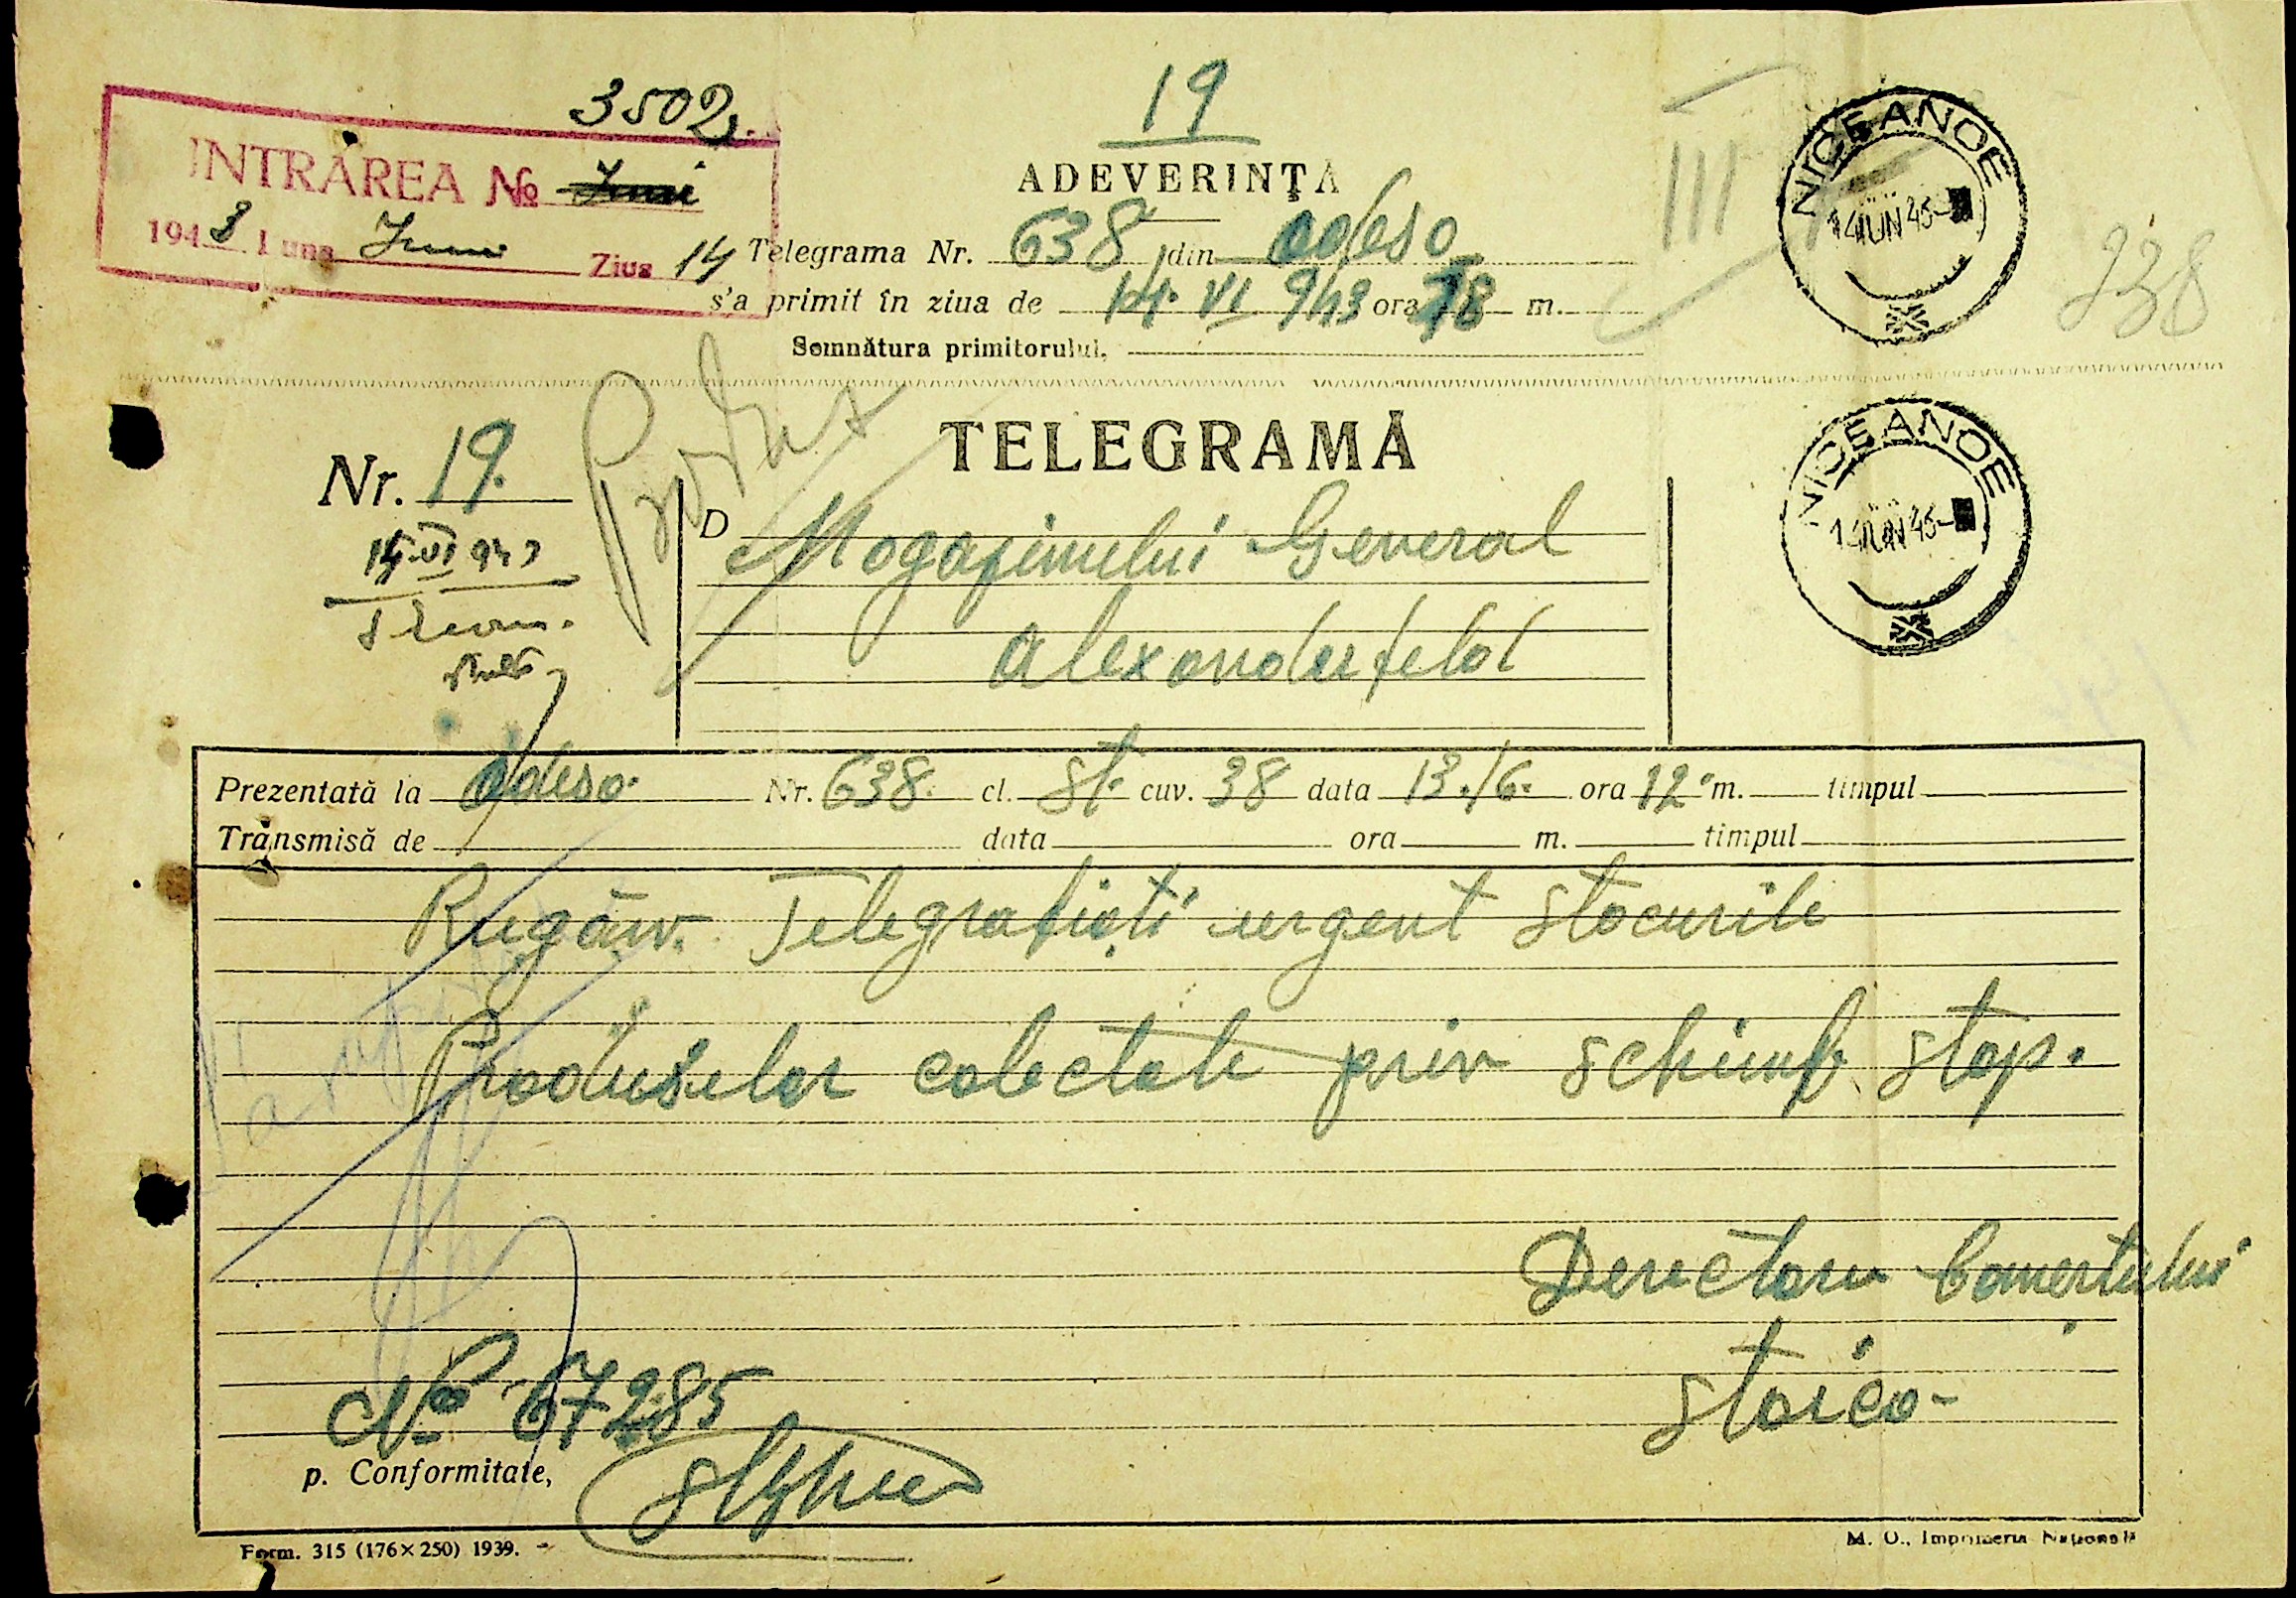 3502
19
INTRAREA № Juni
1943 Luna Juni Ziua 14
ADEVERINŢA
Telegrama Nr. 638 din Odesa
s'a primit în ziua de 14. VI 943 ora 18 m.
Semnătura primitorului,
III
NICEANOE
14 IUN 43
938
TELEGRAMĂ
Nr. 19.
14 VI 943
D Magazinului General
Alexanderfeld
NICEANOE
14 IUN 43
Prezentată la Odesa. Nr. 638. cl. St. cuv. 38 data 13./6. ora 12 m. timpul
Transmisă de data ora m. timpul
Rugăm. Telegrafiați urgent stocurile
Produselor colectate prin schimb stop.
Derectoru Comertului
Stoica-
№ 67285
p. Conformitate,
Form. 315 (176×250) 1939.
M. O., Imprimeria Națională